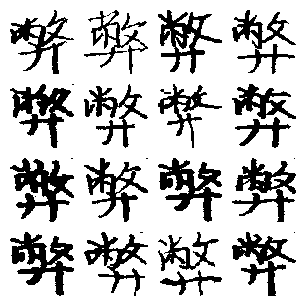 弊弊弊弊
弊弊弊弊
弊弊弊弊
弊弊弊弊